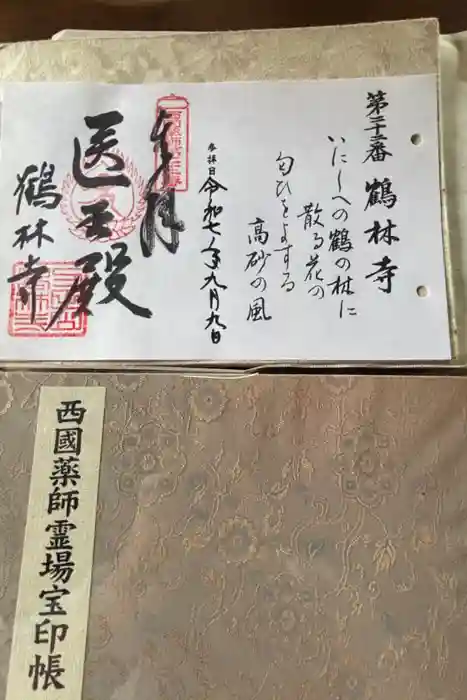 第二十二番 鶴林寺
いにしへの鶴の林に
散る花の
匂ひをよする
高砂の風
参拝日 令和七年九月九日
奉拝
医王殿
鶴林寺
西國薬師霊場宝印帳